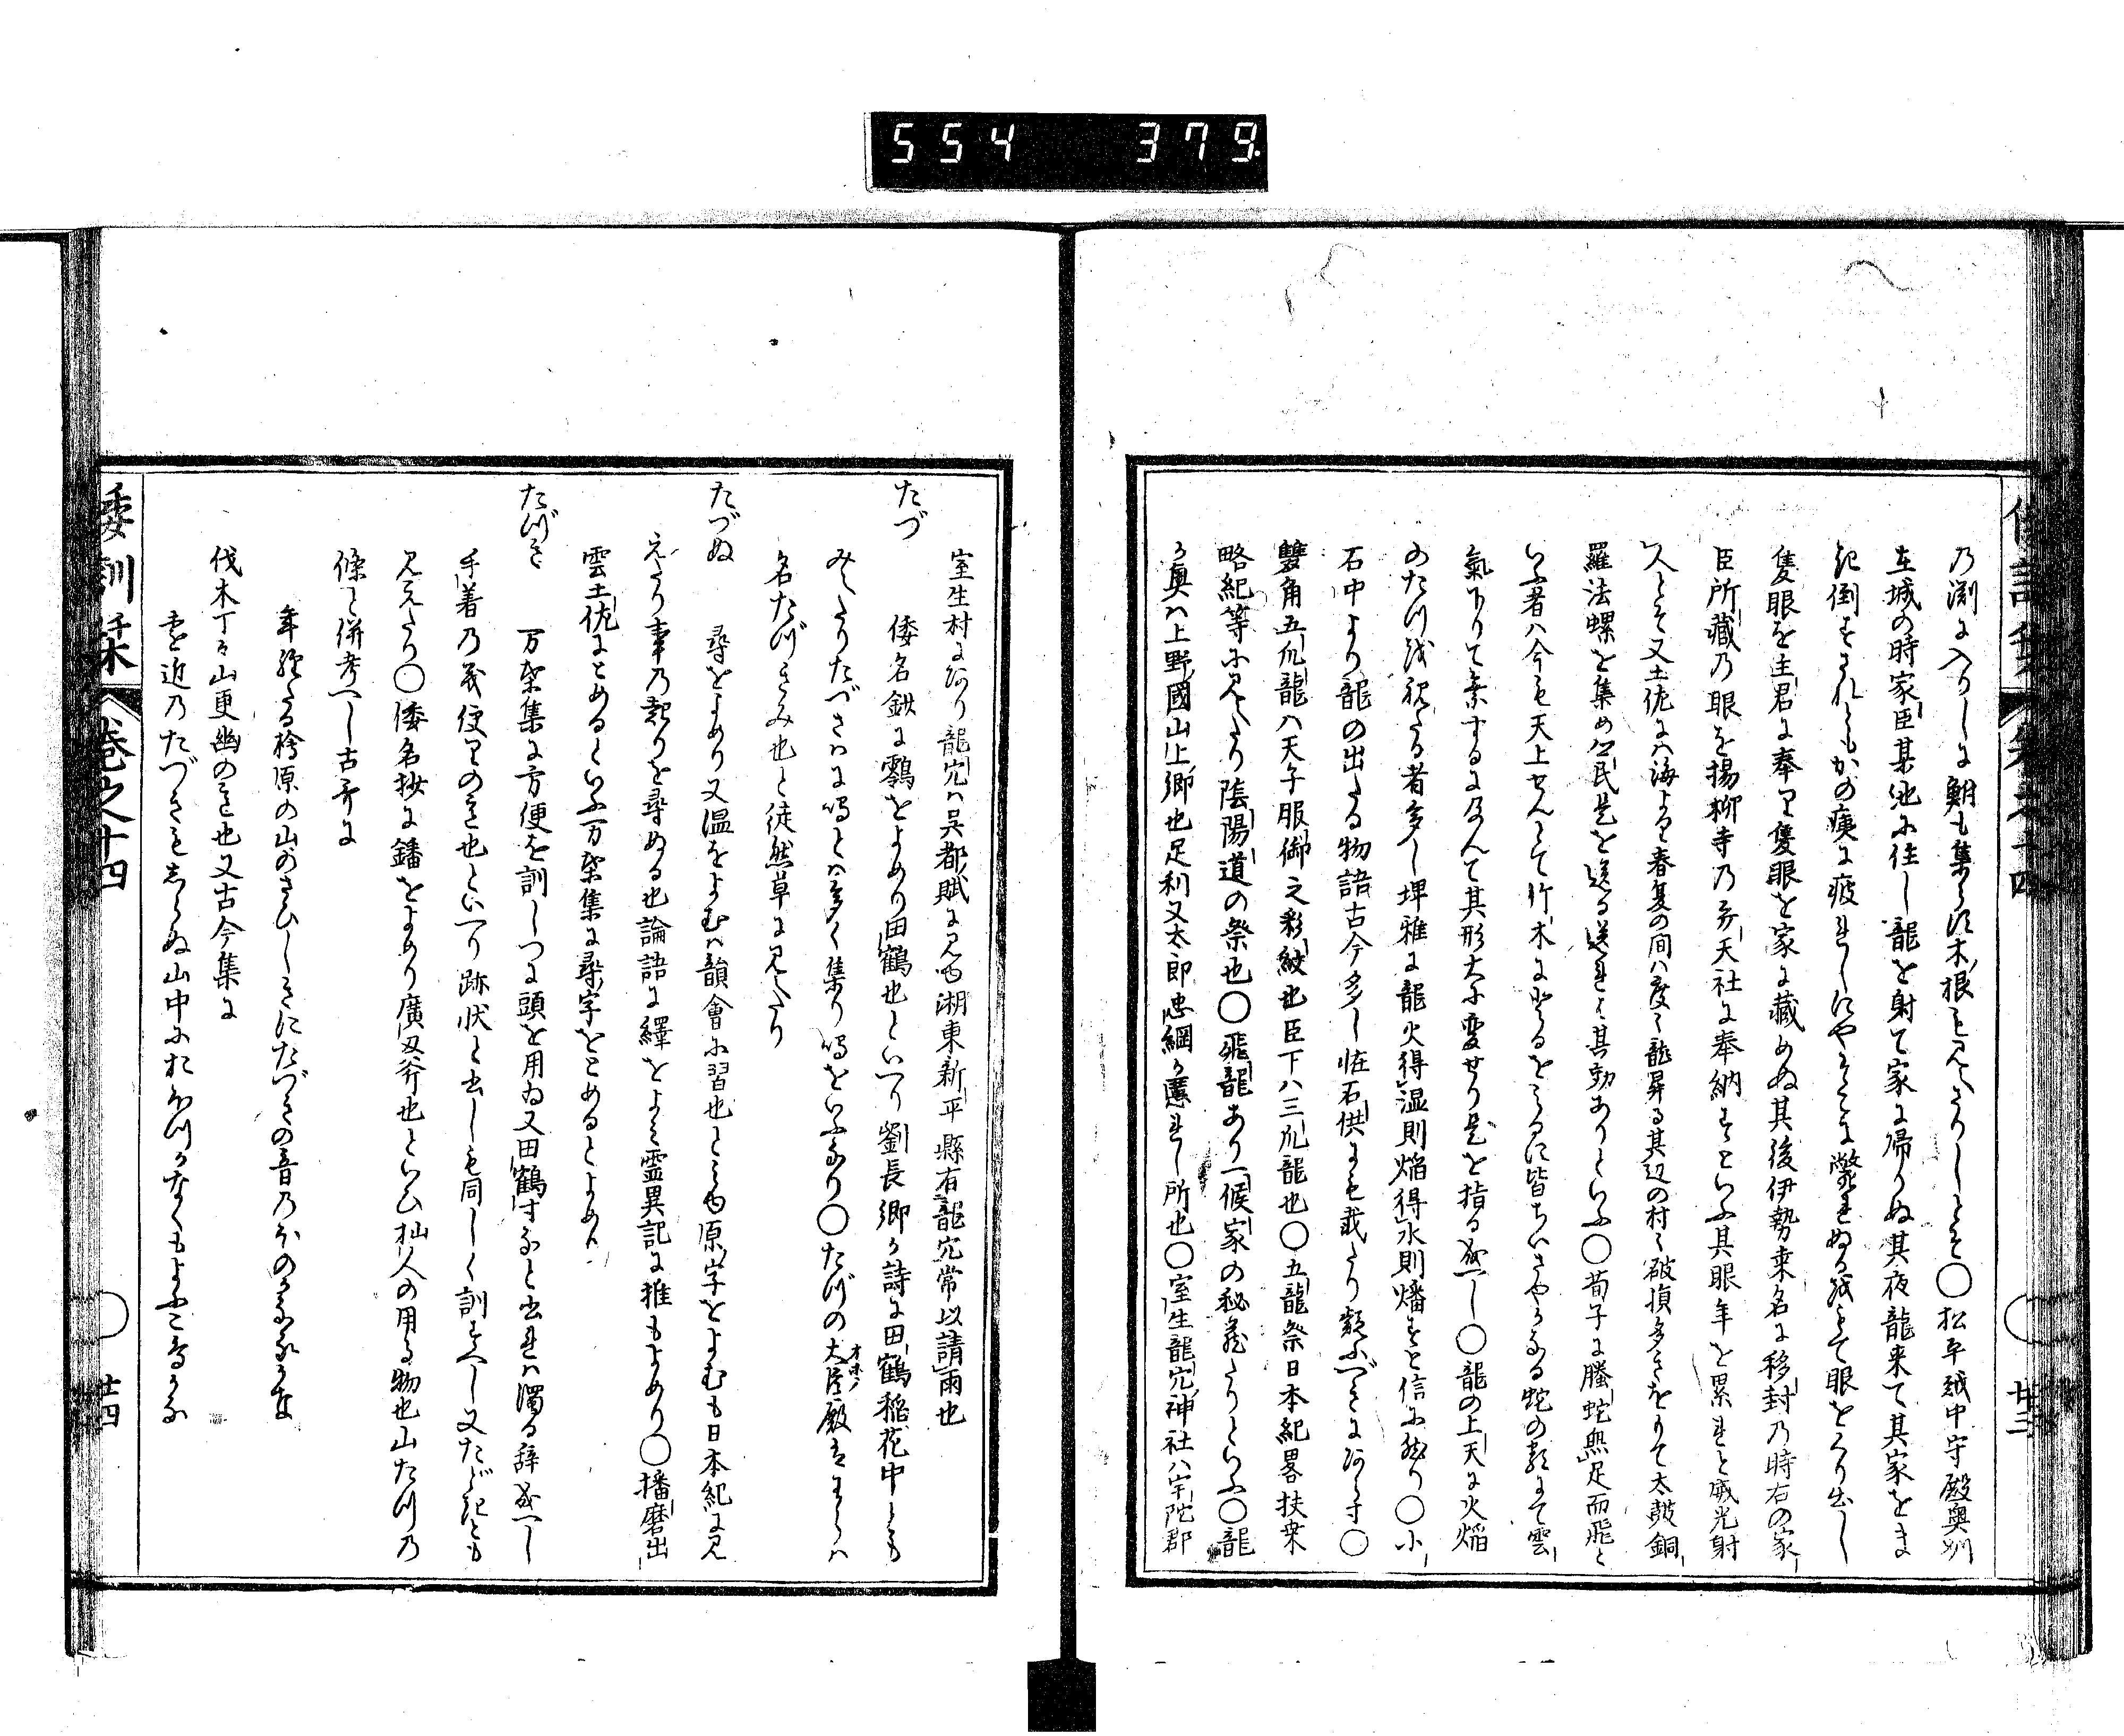 554 379
乃渕に入りしに鮒も集らす木根も見えさりしとそ○松平越中守殿奥州
在城の時家臣某池に住し龍を射て家に帰りぬ其夜龍来て其家をま
き倒すされともかの痍に疲れしにやそこに斃れぬるを見て眼をくり出し
隻眼を主君に奉り隻眼を家に藏めぬ其後伊勢桒名に移封乃時右の家
臣所藏乃眼を揚柳寺乃弁天社に奉納すといふ其眼年を累れと威光射
人とそ又土佐には海より春夏の間は度々龍昇る其辺の村々破損多きをもて太鼓銅
羅法螺を集め公民是を送る送れは其効ありといふ○荀子に螣蛇無足而飛と
いふ者は今も天上せんとて竹木に登るをみるに皆ちいさやかなる蛇の類にて雲
氣下りて乗するに及んて其形大に変せり是を指る成へし○龍の上天に火焔
のたつを視たる者多し埤雅に龍火得湿則焔得水則燔すと信に然り○小
石中より龍の出たる物語古今多し怪石供にも載たり類ふへきにあらす○
雙角五爪龍は天子服御之彩紋也臣下は三爪龍也○五龍祭日本紀畧扶桒
略紀等に見えたり陰陽道の祭也○飛龍あり一候家の秘蔵たりといふ○龍
か奥は上野國山上郷也足利又太郎忠綱か隠れし所也○室生龍穴神社は宇陀郡
卷之十四
廿三
室生村にあり龍穴は呉都賦に見ゆ湖東新平縣有龍穴常以請雨也
たづ 倭名鈔に鸖をよめり田鶴也といへり劉長卿か詩に田鶴稲花中とも
みえたりたづさはに鳴とは多く集り鳴をいふなり○たづの大臣殿といへるは
オホノ
名たづきみ也と徒然草に見えたり
たづぬ 尋をよめり又温をよむは韻會に習也とみゆ原字をよむも日本紀に見
えたり事乃起りを尋ぬる也論語に繹をよみ霊異記に推もよめり○播磨出
雲土佐にとめるといふ万葉集に尋字をとめるとよめり
たづき 万葉集に方便を訓しつに頭を用ゐ又田鶴寸なと書れは濁る辞成へし
手着乃義便りのき也といへり跡状と書しも同しく訓すへし又たどきとも
見えたり○倭名抄に鐇をよめり廣刃斧也といひ杣人の用る物也山たつ乃
條と併考へし古哥に
年経たる檜原の山のさひしきにたづきの音乃ほのかなるかな
伐木丁々山更幽の意也又古今集に
をち近乃たづきもしらぬ山中におほつかなくもよふこ鳥かな
倭訓栞 卷之十四
廿四